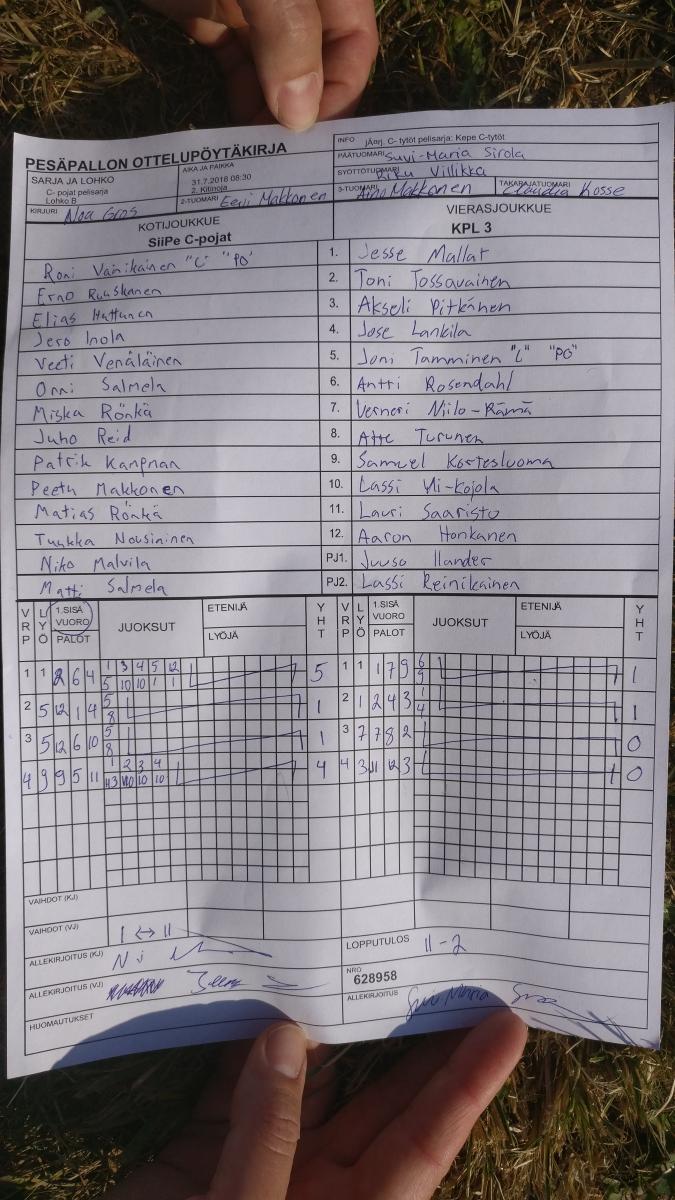 PESÄPALLON OTTELUPÖYTÄKIRJA
INFO jÄarj. C- tytöt pelisarja: Kepe C-tytöt
PÄÄTUOMARI Suvi-Maria Sirola
SARJA JA LOHKO
C- pojat pelisarja
Lohko B
AIKA JA PAIKKA
31.7.2018 08:30
2. Kitinoja
SYÖTTÖTUOMARI Riku Villikka
KIRJURI Noa Gros
2-TUOMARI Eevi Makkonen
3-TUOMARI Aino Makkonen
TAKARAJATUOMARI Claudia Kosse
KOTIJOUKKUE
SiiPe C-pojat
VIERASJOUKKUE
KPL 3
Roni Väinikäinen "L" "PO" 1. Jesse Mallat
Erno Ruuskanen 2. Toni Tossavainen
Elias Hattunen 3. Akseli Pitkänen
Jero Inola 4. Jose Lankila
Veeti Venäläinen 5. Joni Tamminen "L" "PO"
Onni Salmela 6. Antti Rosendahl
Miska Rönkä 7. Verneri Niilo-Rämä
Juho Reid 8. Atte Turunen
Patrik Kanpnan 9. Samuel Kortesluoma
Peetu Makkonen 10. Lassi Yli-Kojola
Matias Rönkä 11. Lauri Saaristo
Tuukka Nousiainen 12. Aaron Honkanen
Niko Malvila PJ1. Juuso Ilander
Matti Salmela PJ2. Lassi Reinikainen
VRP LYÖ 1.SISÄ VUORO PALOT JUOKSUT ETENIJÄ LYÖJÄ YHT VRP LYÖ 1.SISÄ VUORO PALOT JUOKSUT ETENIJÄ LYÖJÄ YHT
1 3 4 5 12 6
1 1 2 6 4 5 10 10 1 1 5 1 1 1 7 9 9 1
5 1
2 5 12 1 4 8 1 2 1 2 4 3 4 1
5
3 5 12 6 10 8 1 3 7 7 8 2 0
1 2 3 4
4 9 9 5 11 10 10 10 4 4 3 11 12 3 0
VAIHDOT (KJ)
VAIHDOT (VJ) 1 ↔ 11
ALLEKIRJOITUS (KJ)
LOPPUTULOS 11-2
ALLEKIRJOITUS (VJ)
NRO
628958
HUOMAUTUKSET
ALLEKIRJOITUS Suvi Maria